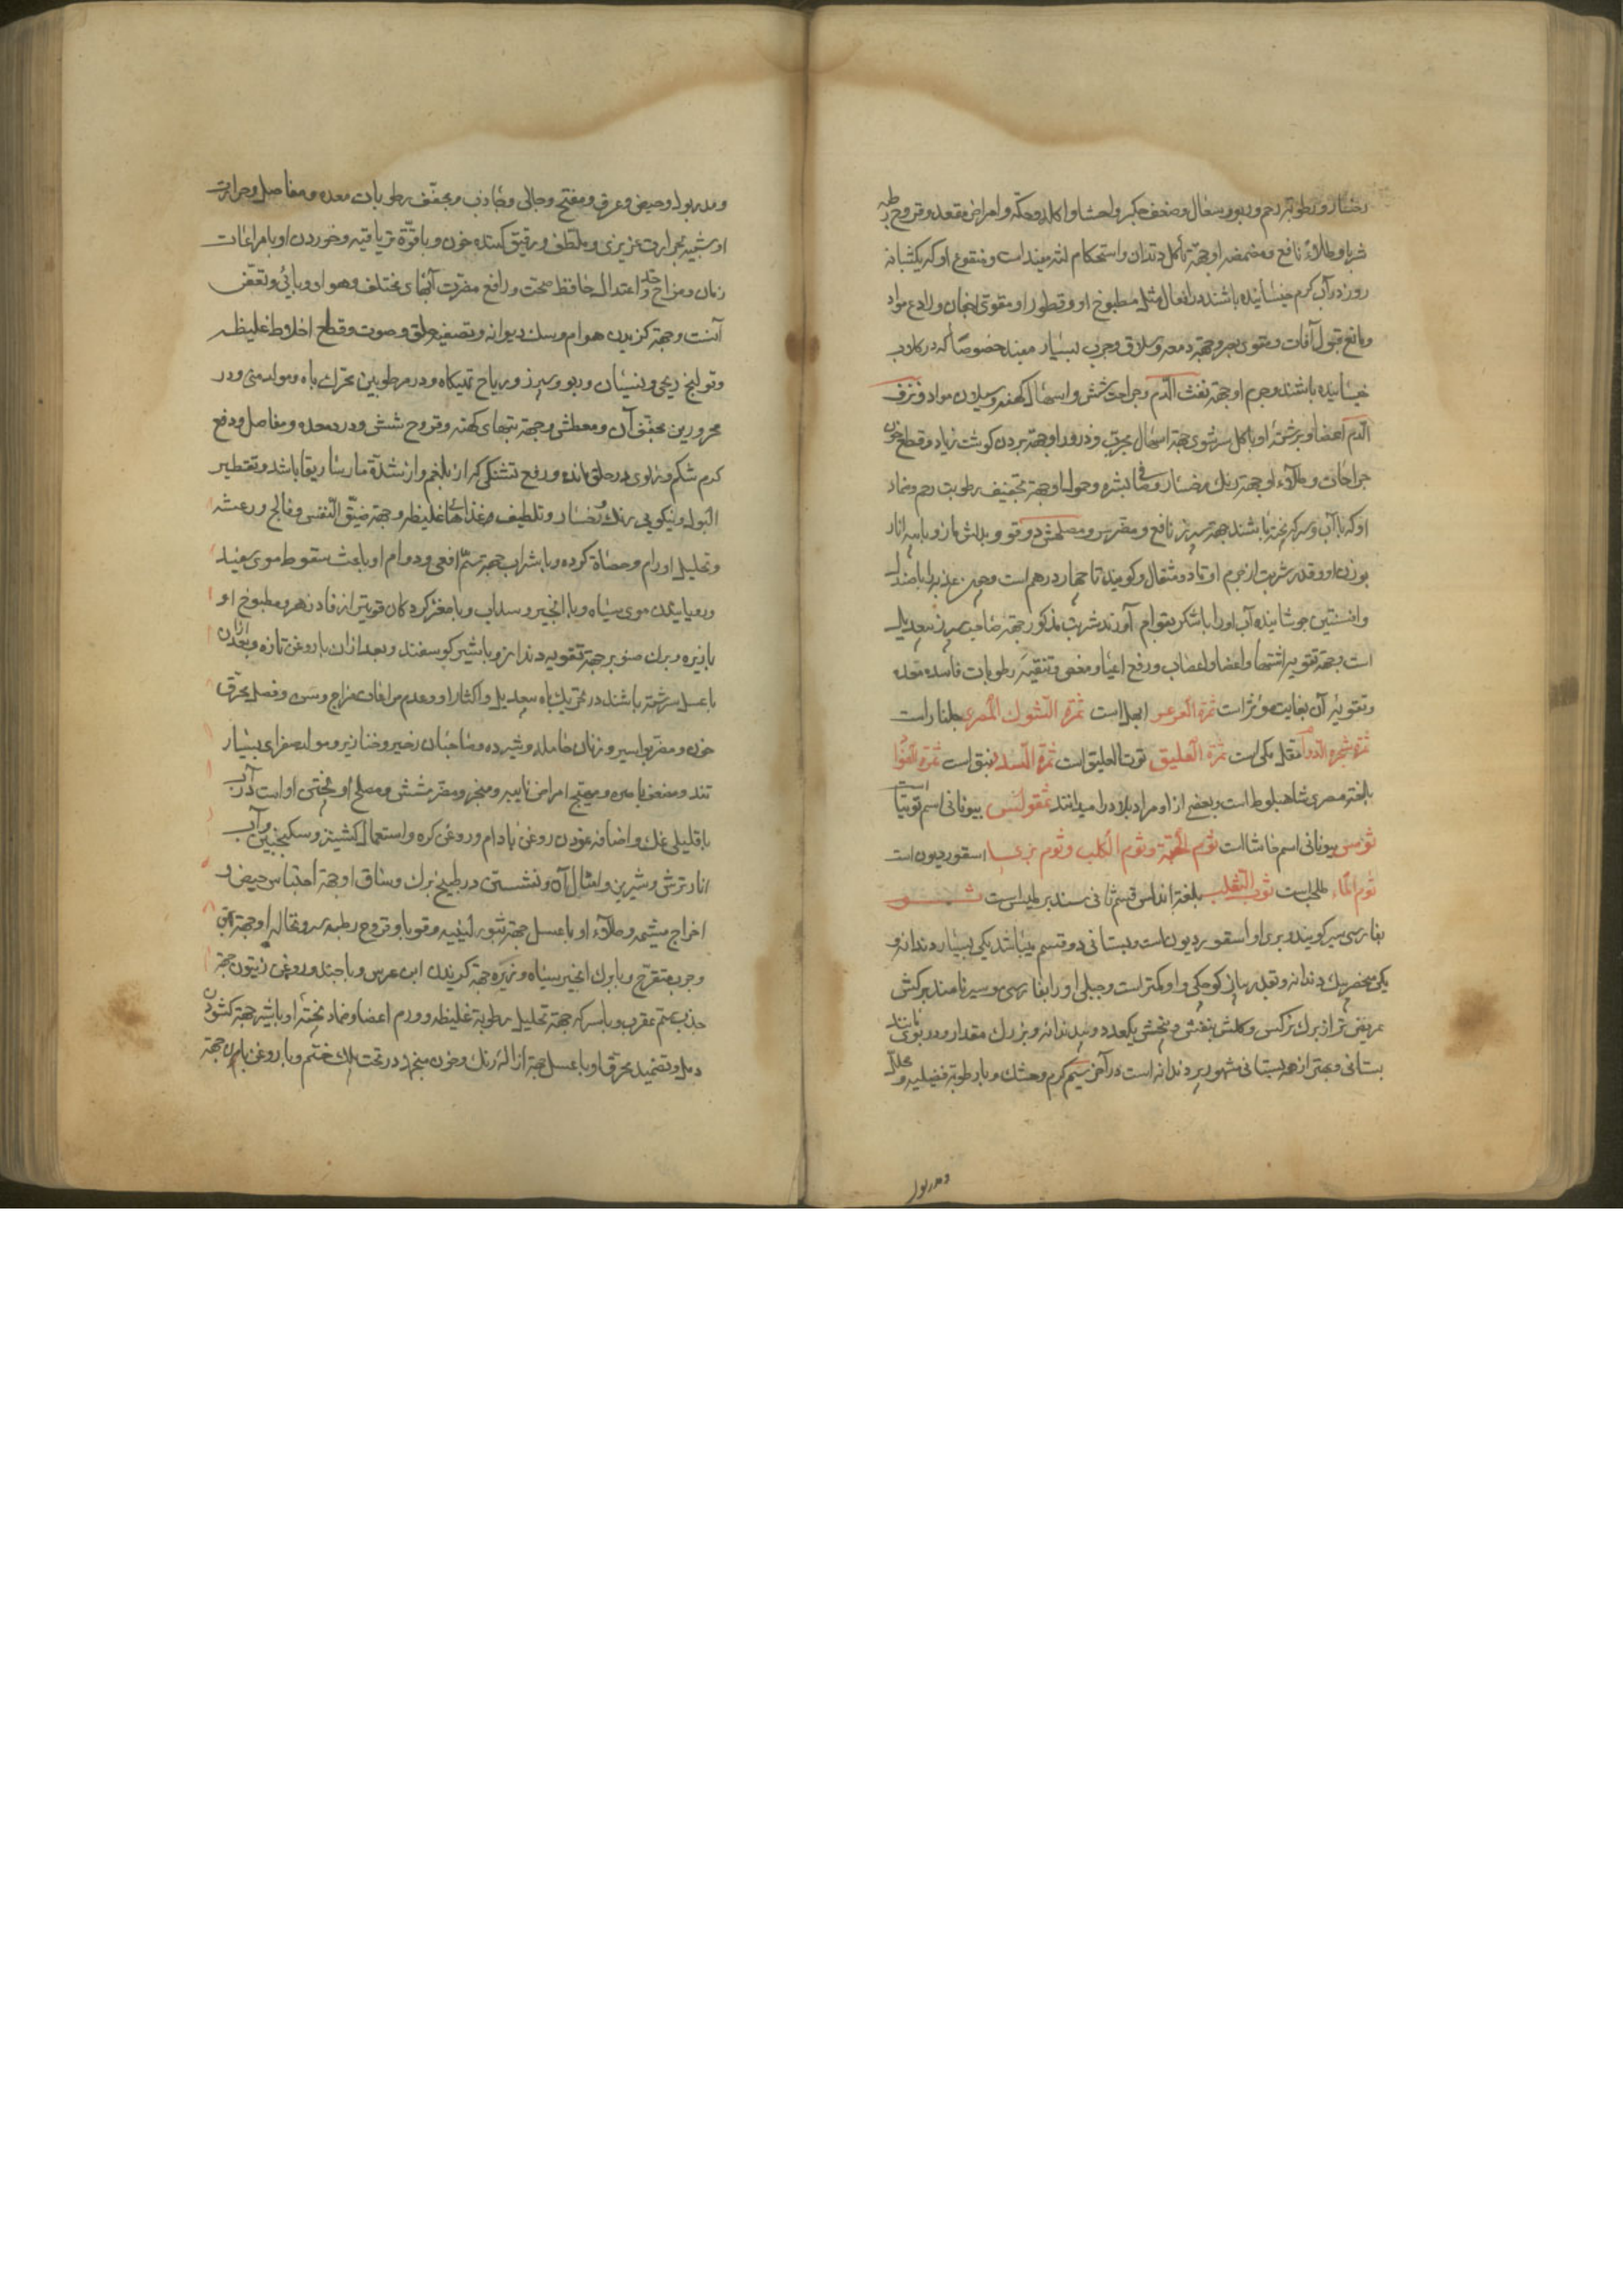 رخسار و رطوبة رحم و ربو و سعال و ضعف جكر و احشا و اكله و حكه و امراض مقعد و قروح رطبه
شربا و طلاءً نافع و مضمضه او جهة تأكل دندان و استحكام لثه مفيد است و منقوع او كه يكشبانه
روز در آب كرم خيسانيده باشند در افعال مثل مطبوخ او و قطور او مقوى اجفان و رادع مواد
و مانع قبول آفات و مقوى بصر و جهة دمعه و سلاق و جرب بسيار مفيد خصوصاً كه در كلاب
خيسانيده باشند و جرم او جهة نفث الدّم و جراحت شش و اسهال كهنه و سيلان مواد و نزف
الدّم اعضا و برشته او با كل سرشوى جهة اسهال مجرب و ذرور او جهة بردن كوشت زياد و قطع خون
جراحات و طلاء او جهة رنك رخسار و صفاى بشره و حمول او جهة تجفيف رطوبت رحم و ضماد
او كه با آب و سركه پخته باشند جهة سپرز نافع و مضر سر و مصلحش دوقو و بدلش مازو با پوست انار
بوزن او و قدر شربت از جرم او تا دو مثقال و كويند تا چهار درهم است و چون عذبه را با صندل
و افسنتين جوشانيده آب او را با شكر بقوام آورند شربت مذكور جهة صاحب سپرز بيعديل
است و جهة تقويه اشتها و اعضا و اعصاب و رفع اعيا و مغص و تنقيه رطوبات فاسده معده
و تقويه آن بغايت مؤثر است ثمرة العرعر ابهل است ثمرة الشوك المصرى جلنار است
ثمرة شجرة الدوم مقل مكى است ثمرة العليق توت العليق است ثمرة السدر نبق است ثمرة الفؤاد
بلغة مصرى شاهبلوط است و بعضى از او مراد بلادر را ميدانند ثمقولس بيونانى اسم توتيا است
ثومس بيونانى اسم حاشا است ثوم الحية و ثوم الكلب و ثوم برى اسقورديون است
ثوم الماء طحلب است ثوب الثعلب بلغة اندلس قسم ثانى سندريطس است ثـــوم
بفارسى سير كويند و برى او اسقورديون است و بستانى دو قسم ميباشد يكى بسيار دندانه و
يكى منحصر بيك دندانه و بقدر پياز كوچكى و او كمتر است و جبلى او را بفارسى موسير نامند بركش
عريض تر از برك نركس و كلش بنفش و بيخش يكعدد و بيدندانه و بزرك مقدار و در بوى مانند
بستانى و بهتر از همه بستانى مشهور پر دندانه است در آخر سيم كرم و خشك و با رطوبة فضليه و محلل
و مدر بول
و مدر بول و حيض و عرق و مفتح و جالى و جاذب و مجفّف رطوبات معده و مفاصل و حرارت
او شبيه بحرارت غريزى و ملطف و رقيق كننده خون و با قوّة ترياقيه و خوردن او با مراعات
زمان و مزاج و حد اعتدال حافظ صحت و رافع مضرت آبهاى مختلف و هواى وبائى و تعفّن
آنست و جهة كزيدن هوام و سك ديوانه و تصفيه حلق و صوت و قطع اخلاط غليظه
و قولنج ريحى و نسيان و ربو و سپرز و رياح تهيكاه و در مرطوبين محرك باه و مولد منى و در
محرورين مجفف آن و معطش و جهة تبهاى كهنه و قروح شش و درد معده و مفاصل و دفع
كرم شكم و زلوى در حلق مانده و رفع تشنكى كه از بلغم و از شدّة ماساريقا باشد و تقطير
البول و نيكويى رنك رخسار و تلطيف غذاهاى غليظه و جهة ضيّق النفس و فالج و رعشه
و تحليل اورام و حصاة كرده و با شراب جهة سمّ افعى و دوام او باعث سقوط موى سفيد
و رويانيدن موى سياه و با انجير و سداب و با مغز كردكان قويتر از فادزهر و مطبوخ او
با زيره و برك صنوبر جهة تقويه دندان و با شير كوسفند و بعد از آن با روغن تازه و بعد از آن
با عسل سرشته باشند در تحريك باه بيعديل و اكثار او و عدم مراعات مزاج و سن و فصل محرّق
خون و مضر بواسير و زنان حامله و شيرده و صاحبان زحير و خنازير و مولد صفراى بسيار
تند و مضعف باصره و مهيج امراض نايبه و مبخر و مضر شش و مصلح او پختن او است در آب
با قليلى نمك و اضافه نمودن روغن بادام و روغن كره و استعمال كشنيز و سكنجبين و آب
انار ترش و شيرين و امثال آن و نشستن در طبيخ برك و ساق او جهة احتباس حيض و
اخراج مشيمه و طلاء او با عسل جهة بثور لبنيه و قوبا و قروح رطبه سر و نخاله او جهة بهق
و جرب متقرح و با برك انجير سياه و زيره جهة كزيدن ابن عرس و با جند و روغن زيتون جهة
جذب سم عقرب و با سركه جهة تحليل رطوبة غليظه و ورم اعضا و ضماد پخته او با شير جهة كشودن
دمل و تضميد محرّق او با عسل جهة ازاله رنك و خون منجمد در تحت پلك چشم و با روغن بلسان جهة